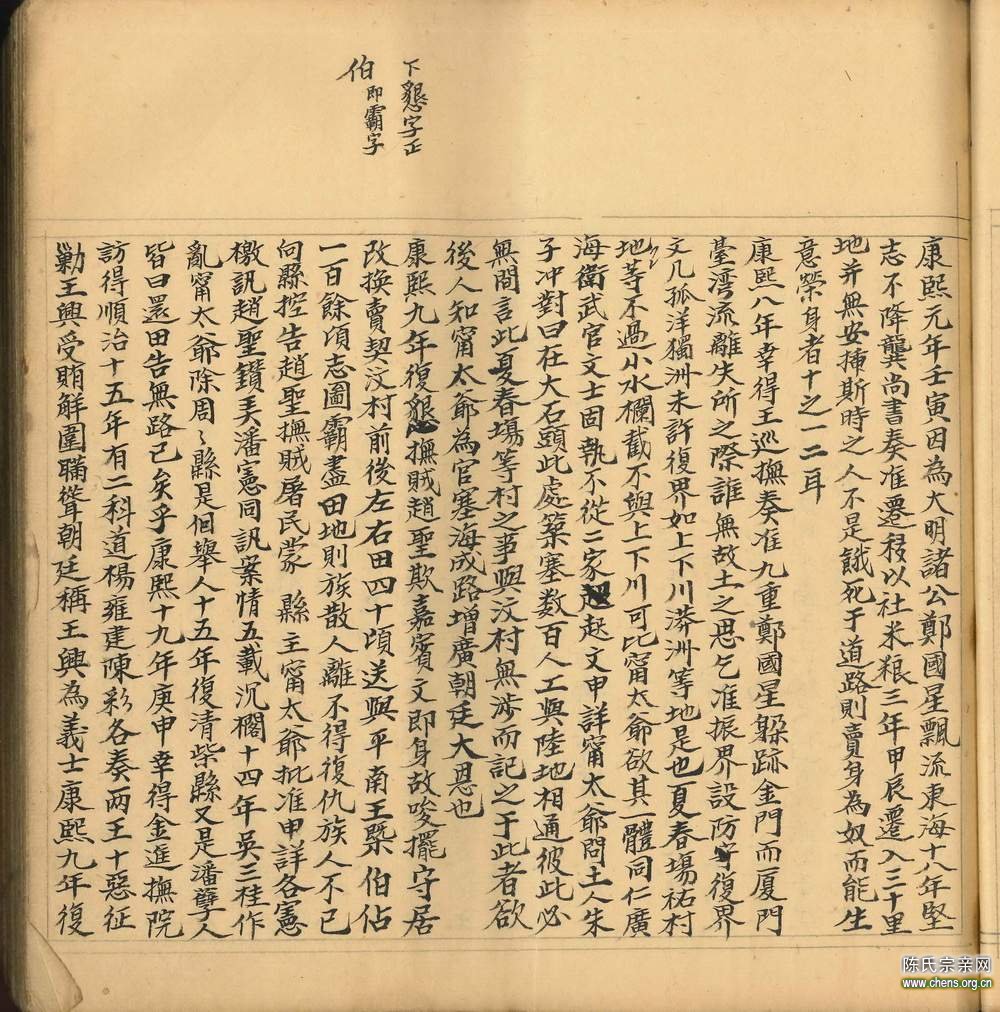 下懇字正
伯即霸字
康熙元年壬寅因為大明諸公鄭國星飄流東海十八年堅
志不降龔尚書奏准遷移以社米粮三年甲辰遷入三十里
地并無安揷斯時之人不是餓死于道路則賣身為奴而能生
意榮身者十之一二耳
康熙八年幸得王巡撫奏准九重鄭國星躲跡金門而厦門
臺湾流離失所之際誰無故土之思乞准振界設防守復界
文凡孤洋獨洲未許復界如上下川漭洲等地是也夏春場祐村
地等不過小水欄截不與上下川可比甯太爺欲其一體同仁廣
海衛武官文士固執不從二家起文申詳甯太爺問土人朱
子冲對曰在大石頭此處築塞数百人工與陸地相通彼此必
無間言此夏春場等村之事與汶村無涉而記之于此者欲
後人知甯太爺為官塞海成路增廣朝廷大恩也
康熙九年復懇撫賊趙聖欺嘉賓文即身故唆擺守居
改換賣契汶村前後左右田四十頃送與平南王槩伯佔
一百餘頃志圖霸盡田地則族散人離不得復仇族人不已
向縣控告趙聖撫賊屠民蒙 縣主甯太爺批准申詳各憲
檄訊趙聖鑽美潘憲同訊案情五載沉擱十四年吳三桂作
亂甯太爺除周〻縣是佪舉人十五年復清柴縣又是潘孽人
皆曰還田告無路已矣乎康熙十九年庚申幸得金進撫院
訪得順治十五年有二科道楊雍建陳彩各奏两王十惡征
勦王興受賄解圍瞞聳朝廷稱王興為義士康熙九年復
陈氏宗亲网
www.chens.org.cn